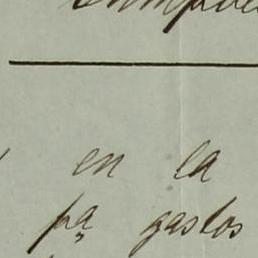 en la
pª gastos